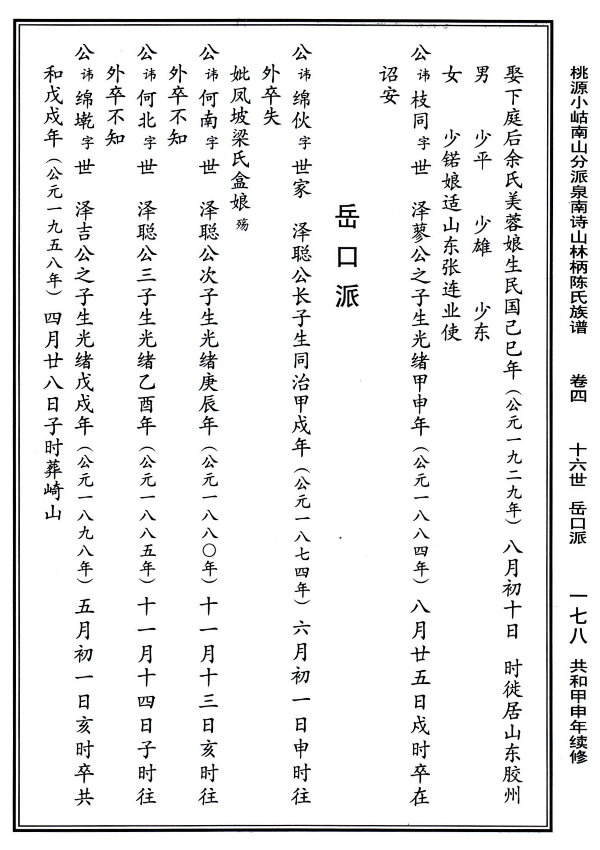 桃源小岵南山分派泉南诗山林柄陈氏族谱 卷四 十六世 岳口派 一七八 共和甲申年续修
娶下庭后余氏美蓉娘生民国己巳年（公元一九二九年）八月初十日 时徙居山东胶州
男 少平 少雄 少东
女 少锘娘适山东张连业使
公讳枝同字世 泽蓼公之子生光绪甲申年（公元一八八四年）八月廿五日戍时卒在
诏安
岳口派
公讳绵伙字世家 泽聪公长子生同治甲戍年（公元一八七四年）六月初一日申时往
外卒失
妣凤坡梁氏盒娘殇
公讳何南字世 泽聪公次子生光绪庚辰年（公元一八八〇年）十一月十三日亥时往
外卒不知
公讳何北字世 泽聪公三子生光绪乙酉年（公元一八八五年）十一月十四日子时往
外卒不知
公讳绵墘字世 泽吉公之子生光绪戊戍年（公元一八九八年）五月初一日亥时卒共
和戊戍年（公元一九五八年）四月廿八日子时葬崎山